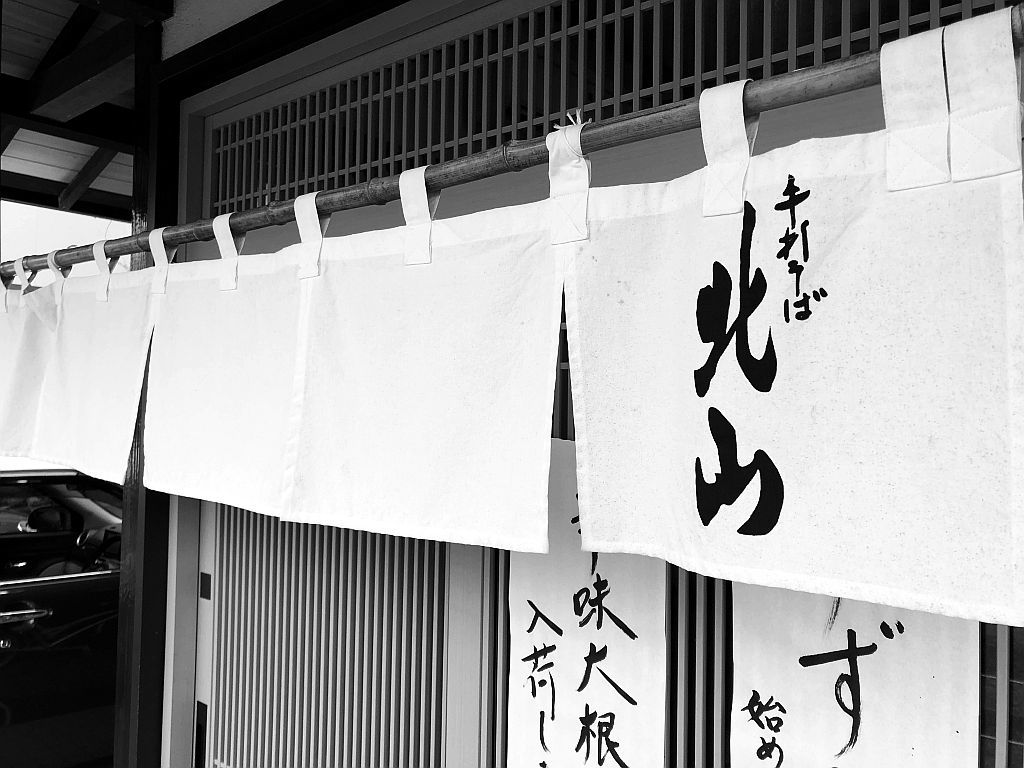 手打そば
北山
味大根
入荷し
ず
始め